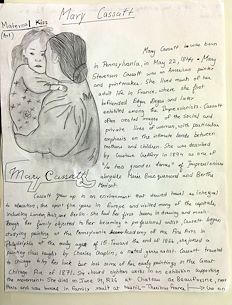 Mary Cassatt
Maternal Kiss
(Art)
Mary Cassatt was born
in Pennsylvania, in May 22, 1844. Mary
Stevenson Cassatt was an American painter
and printmaker. She lived much of her
adult life in France, where she first
Edgar Degas and later
exhibited among the Impressionists. Cassatt
often created images of the social and
private lives of women, with particular
emphasis on the intimate bonds between
mothers and children. She was described
by Gustave Geffroy in 1894 as one of
"les trois grandes dames" of Impressionism
alongside Marie Bracquemond and Berthe
Morisot.
Mary Cassatt
Cassatt grew up in an environment that viewed travel as integral
to education; she spent five years in Europe and visited many of the capitals,
including London, Paris, and Berlin. She had her first lessons in drawing and music
though her family objected to her becoming a professional artist, Cassatt began
studying painting at the Pennsylvania Academy of the Fine Arts in
Philadelphia at the early age of 15. Toward the end of 1866, she
painting class taught by Charles Chaplin, a noted genre artist. Cassatt traveled
to Chicago to try her luck but lost some of her early paintings in the Great
Chicago Fire of 1871. She
the movement. She died on June 14, 1926 at Château de Beaufresne, near
Paris and was buried in family vault at Mesnil-Théribus, France.